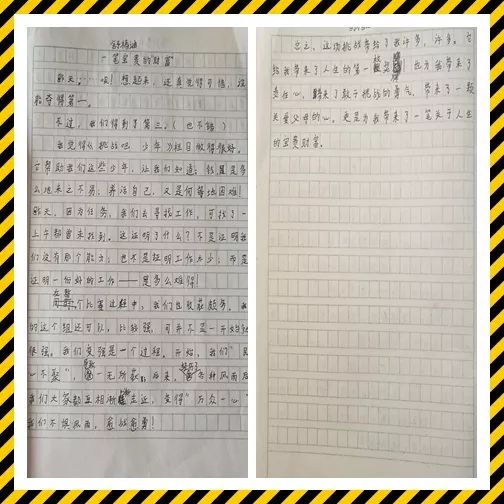 舒楠迪
一笔宝贵的财富
昨天……唉!想起来,还真觉得可惜,没
能夺得第一。
不过,我们得到了第三。(也不错)
我觉得《挑战吧 少年》栏目做得很好。
它帮助我们这些少年,让我们知道:钱是多
么地来之不易,养活自己,又是何等地困难!
昨天,因为任务,我们去寻找工作,可找了一
上午都曾未找到。这证明了什么?不是证明我
们没有那个能力;也不是证明工作太少;而是
证明一份好的工作——是多么难得!
在整个比赛过程中,我们也收获颇多,我
的这个组还可以,比较强,可并不是一开始就
很强。我们变强是一个过程。开始,我们"民
心不聚",一无所获。后来,各种风雨后
我们大家都互相渐渐走近,变得"万众一心"
我们不惧风雨,愈战愈勇!
总之,这项挑战带给了我许多,许多。它
给我带来了人生的第一枚,也为我带来了
责任心,带来了敢于挑战的勇气,带来了一颗
关爱父母的心。更是为我带来了一笔关于人生
的宝贵财富。